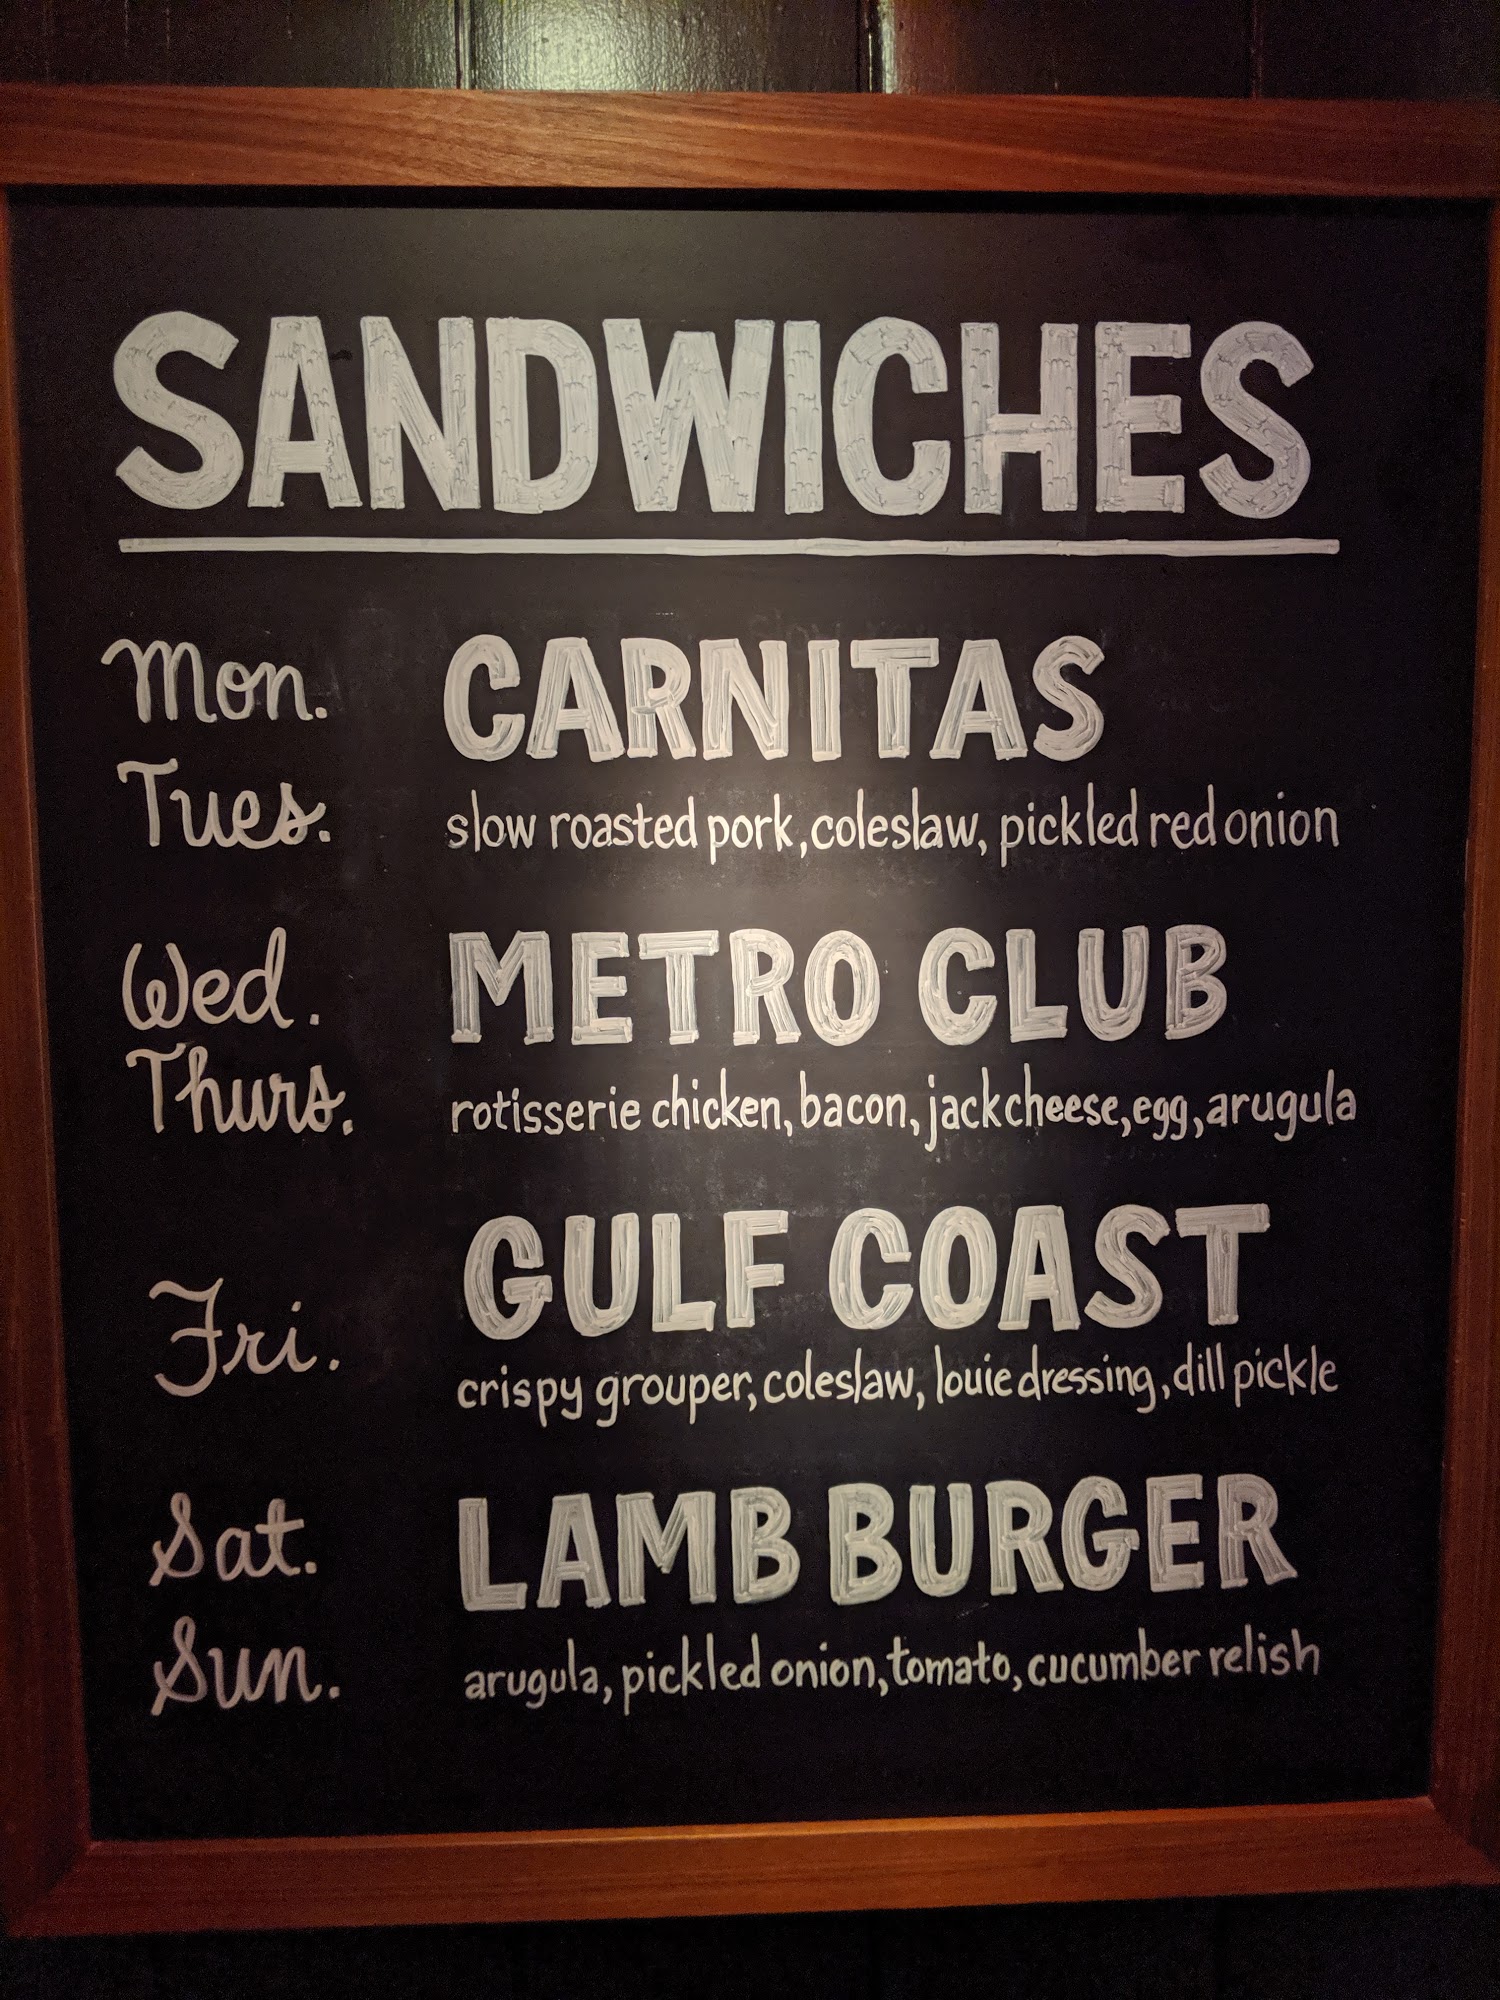 SANDWICHES
Mon. CARNITAS
Tues. slow roasted pork, coleslaw, pickled red onion
Wed. METRO CLUB
Thurs. rotisserie chicken, bacon, jack cheese, egg, arugula
GULF COAST
Fri. crispy grouper, coleslaw, louie dressing, dill pickle
Sat. LAMB BURGER
Sun. arugula, pickled onion, tomato, cucumber relish